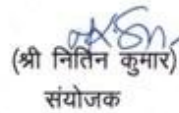 (श्री नितिन कुमार)
संयोजक